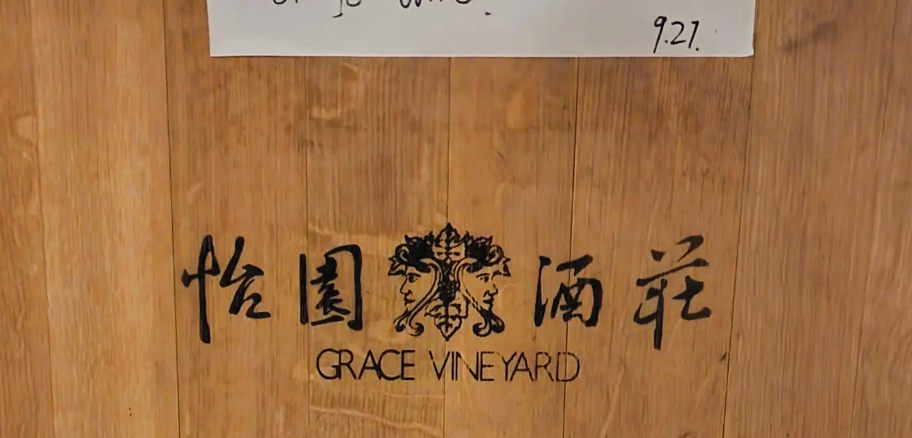 9.27.
怡園酒莊
GRACE VINEYARD